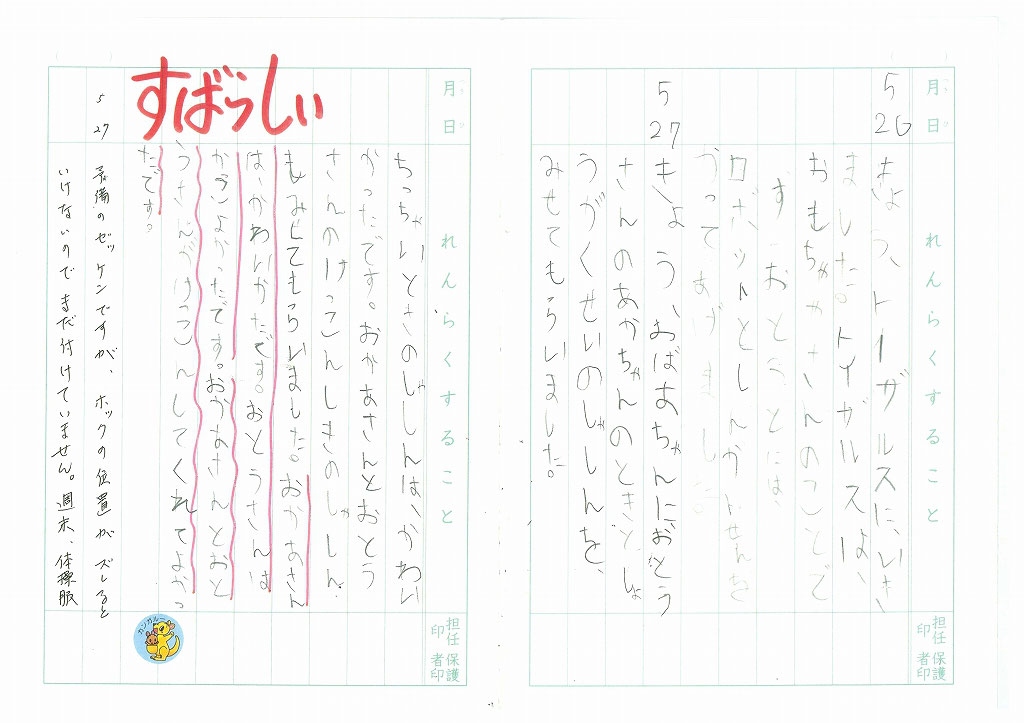 月 日
れんらくすること
担任印
保護者印
5 26
きょう、トーザルスに、いき
ました。トイザルスは、
おもちゃやさんのことで
す。おとうとには、
ロボットとしんかんせんを
かってあげました。
5 27
きょう、おばあちゃんにおとう
さんのあかちゃんのときと、しょ
うがくせいのしゃしんを、
みせてもらいました。
月 日
れんらくすること
担任印
保護者印
ちっちゃいときのしゃしんは、かわい
かったです。おかあさんとおとう
さんのけっこんしきのしゃしん
もみせてもらいました。おかあさん
は、かわいかたです。おとうさんは
かっこよかったです。おかあさんとおと
うさんがけっこんしてくれてよかっ
たです。
すばらしい
カンガルー
5 27
予備のゼッケンですが、ホックの位置がズレると
いけないのでまだ付けていません。週末、体操服